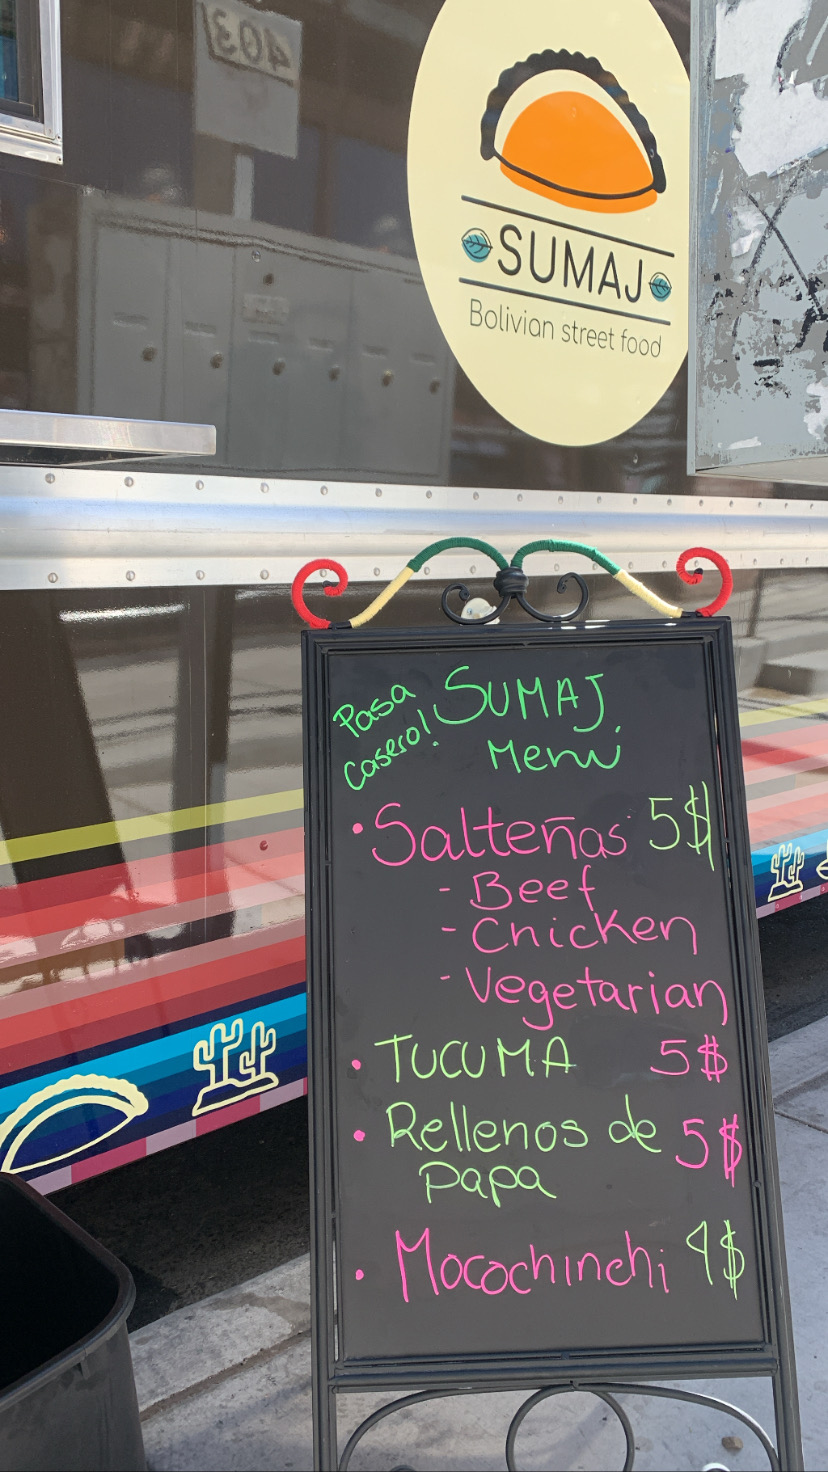 SUMAJ
Bolivian street food
Pasa
Casero!
SUMAJ
Menú
• Salteñas 5$
- Beef
- Chicken
- Vegetarian
• TUCUMA 5$
• Rellenos de
papa 5$
• Mocochinchi 4$
403